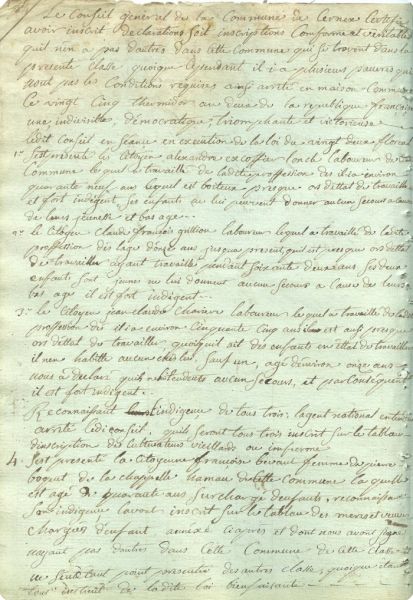 Le Conseil general de la Commune de Cernex Certifie
avoir inscrit declarations soit inscriptions Conforme et veritables
quil nen a pas dautres dans cette Commune qui se trouvent dans la
presente classe quoique Cependant il i a plusieurs pauvres que
nont pas les Conditions requises ainsi arreté en maison Commune
le vingt Cinq thermidor an deux de la republique francoise
une indivisible democratique, triomphante et victorieuse
ledit Conseil en Seance en execution de la loi du vingt deux floreal
1º Sest presenté le Citoyen alexandre laboureur de
Commune lequel a travaille de ladite proffession des il i a environ
quarante neuf ans lequel est boiteux presque ors dettat de travaille
et fort indigent, Ses enfants ne lui peuvent donner aucun Secours a Cause
de leurs jeunesse et bas age
2º le Citoyen Claude francois laboureur lequel a travaille de ladite
proffession dès lage donze ans jusqua present, quil est presque ors dettat
de travailler ayant travaillé pendant soixante deux ans, Ses deux
enfants Sont jeune ne lui donnent aucun secours a Cause de leurs
bas age il est fort indigent
3º le Citoyen jean claude laboureur lequel a travaille de ladite
profession des il i a environ Cinquante Cinq ans est aussi presque
ors dettat de travailler, quoiquil ait des enfans en ettat de travailler
il nen habitte aucun chés lui, Sauf un, agé denviron onze ans
nous a declaré quils ne lui tendents aucun Secours, et par Consequent
il est fort indigent
Reconnaissant lindigence de tous trois, lagent national entendu
arrete ledi Conseil, quils Seront tous trois inscrit Sur le tableau
dinscription des Cultivateurs vieillards ou infirme
4. Sest presenté la Citoyenne francoise femme de pierre
boquet de la chappelle hamau de cette Commune la quelle
est agé de quarante ans Surchargé denfants, reconnaissant
Son indigence lavons inscrit Sur le tableau des meres et veuves
Chargées denfant, annéxé Ciapres et dont nous avons signé
nayant pas dautres dans Cette Commune de Cette classe
ne point presenter des autres classe, quoique
de ladite loi bienfaisante